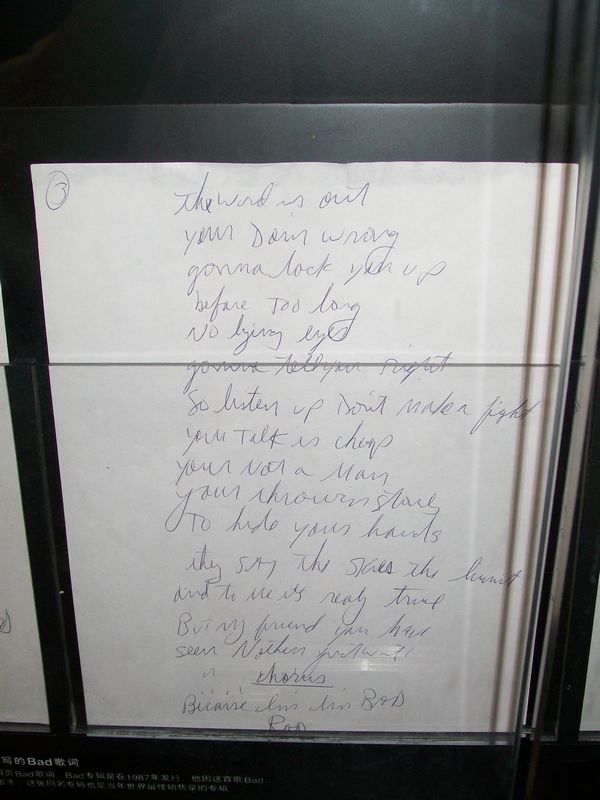 3
The word is out
your Doin wrong
gonna lock you up
before Too long
No lying eyes
gonna tell you right
So listen up Don't Make a fight
your Talk is cheap
your Not a Man
your throwin stone
To hide your hands
they SAY the Skies the limit
and to me its realy true
But my friend you have
seen Nothin
chorus
Because Im Im BAD
BAD
写的Bad歌词
Bad歌词，Bad专辑是在1987年发行，他因这首歌Bad
这张同名专辑也是当年世界最佳销售量的专辑